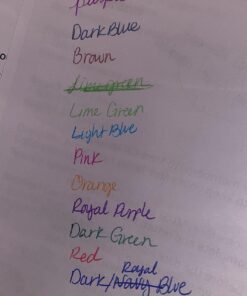 purple
Dark Blue
Brown
Lime green
Lime Green
Light Blue
Pink
Orange
Royal Purple
Dark Green
Red
Royal
Dark/Navy Blue